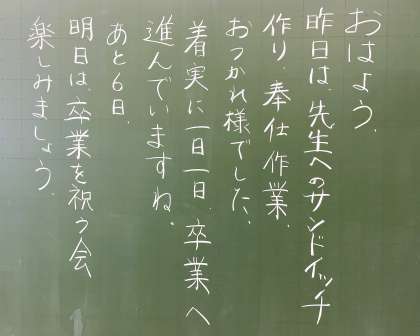 おはよう.
昨日は、先生へのサンドイッチ
作り、奉仕作業、
おつかれ様でした、
着実に一日一日、卒業へ
進んでいますね.
あと6日.
明日は、卒業を祝う会
楽しみましょう.